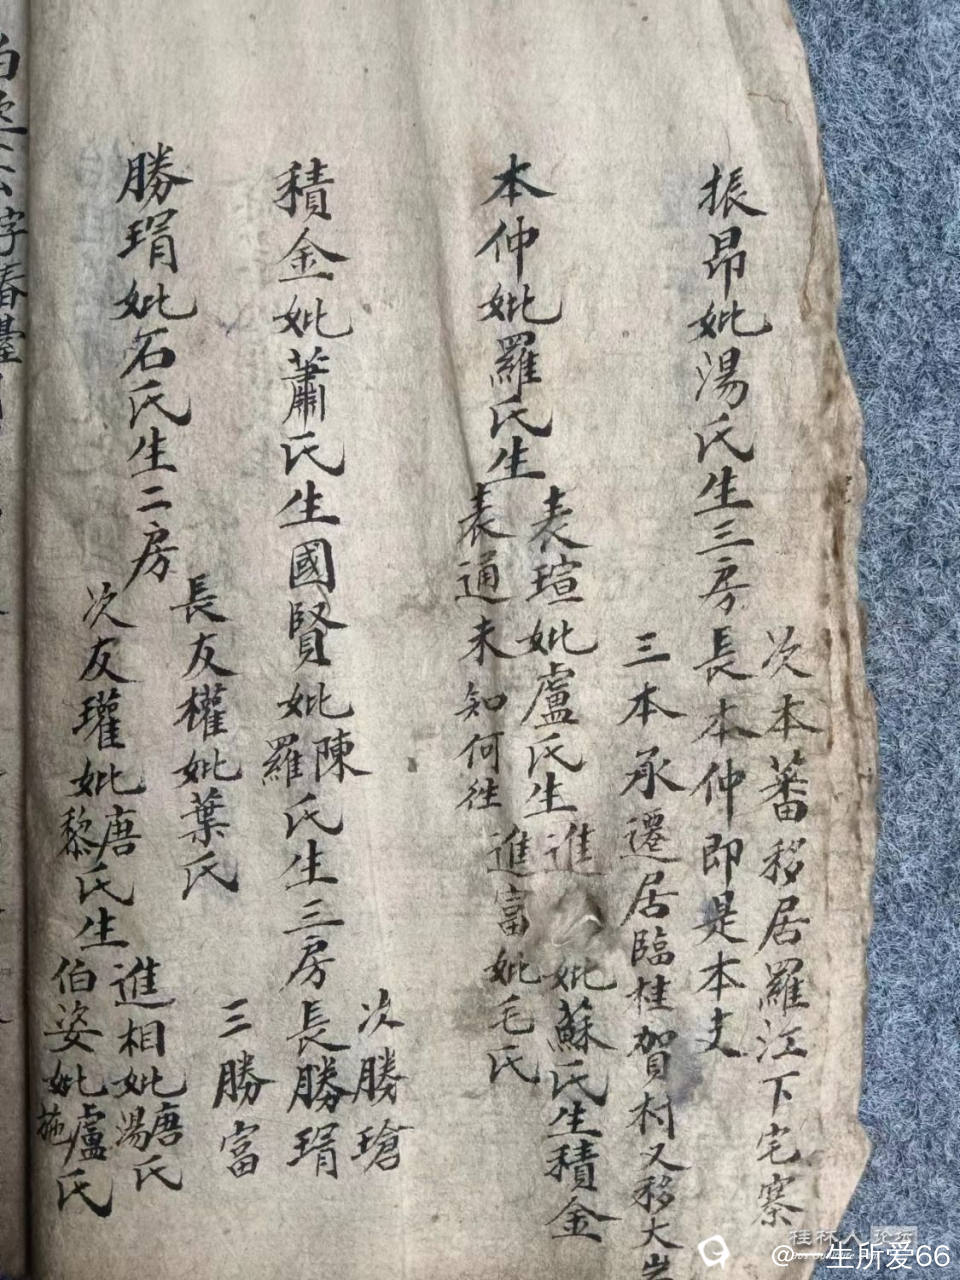 振昂妣湯氏生三房長本仲即是本支
次本蕃移居羅江下宅寨
三本承遷居臨桂賀村又移大
本仲妣羅氏生
表瑄妣盧氏生
表通未知何徃
進 妣蘇氏生積金
進富妣毛氏
積金妣蕭氏生國賢妣陳羅氏生三房長勝琄
次勝瑲
三勝富
勝琄妣石氏生二房
長友權妣葉氏
次友瓘妣唐黎氏生
進相妣唐湯氏
伯姿妣盧施氏
公字春臺
桂林人论坛
@一生所爱66